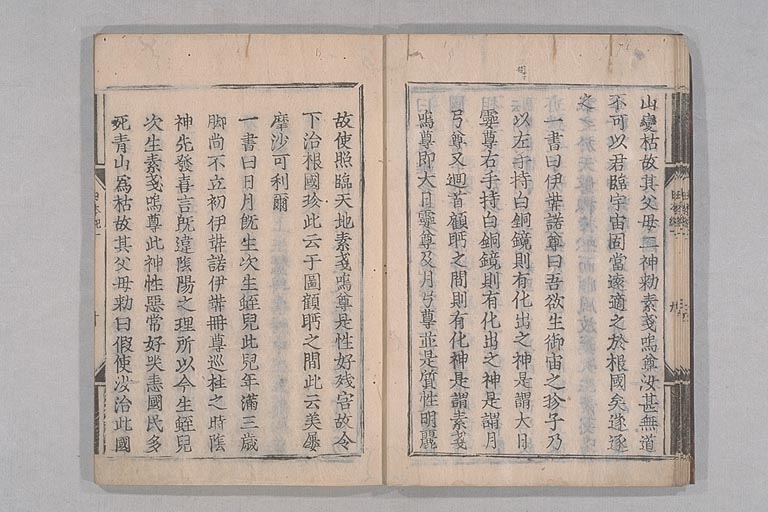 山變枯故其父母二神勑素戔嗚尊汝甚無道
不可以君臨宇宙固當遠適之於根國矣遂逐
之
一書曰伊弉諾尊曰吾欲生御宙之珍子乃
以左手持白銅鏡則有化出之神是謂大日
孁尊右手持白銅鏡則有化出之神是謂月
弓尊又廻首顧眄之間則有化神是謂素戔
嗚尊即大日孁尊及月弓尊並是質性明麗
故使照臨天地素戔嗚尊是性好残害故令
下治根國珍此云于圖顧眄之間此云美屢
摩沙可利爾
一書曰日月既生次生蛭兒此兒年滿三歳
脚尚不立初伊弉諾伊弉冊尊巡柱之時陰
神先發喜言既違陰陽之理所以今生蛭兒
次生素戔嗚尊此神性惡常好哭恚國民多
死青山爲枯故其父母勑曰假使汝治此國